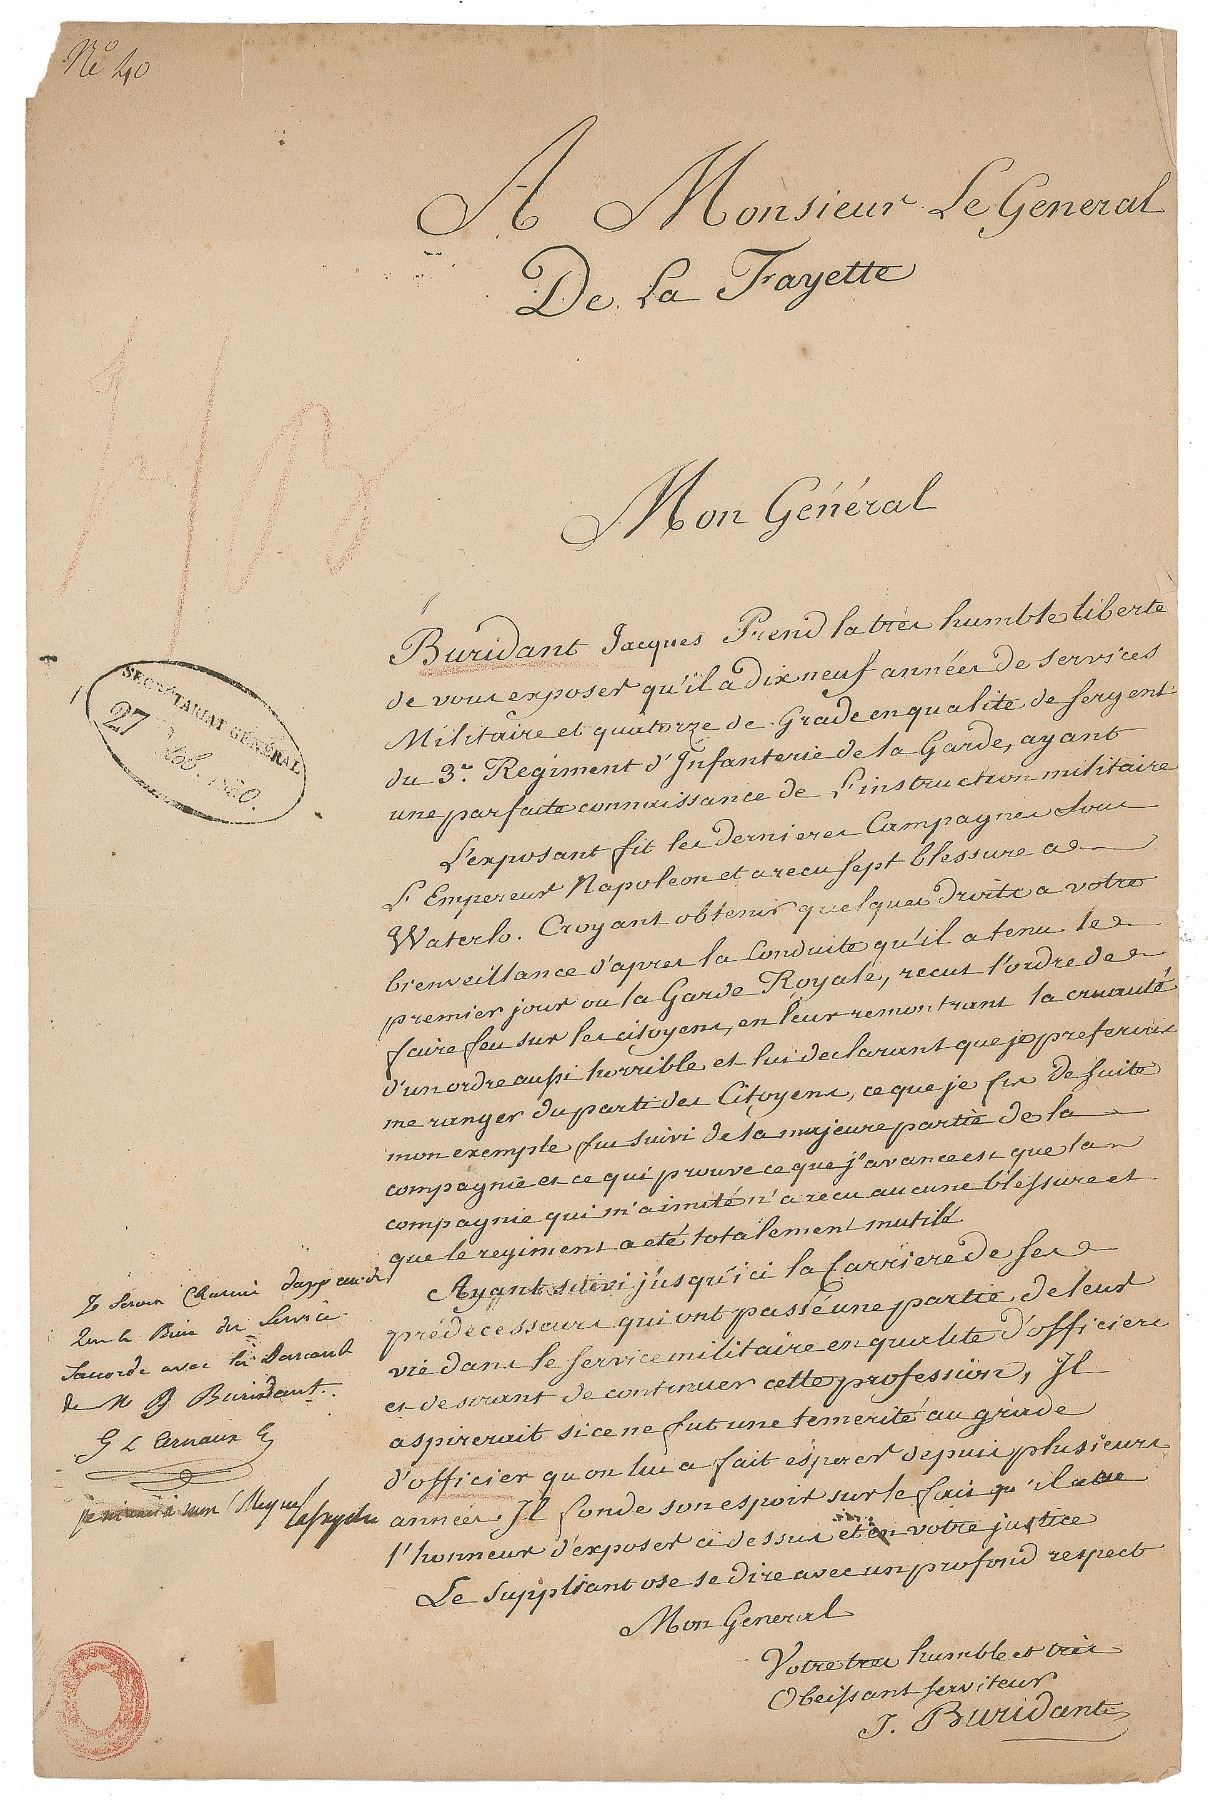 No 40
A Monsieur Le General
De La Fayette
Mon Général
Buridant Jacques Prend la très humble liberté
de vous exposer qu'il a dix neuf années de services
Militaire et quatorze de Grade en qualité de sergent
du 3e. Regiment d'Infanterie de la Garde, ayant
une parfaite connaissance de L'instruction militaire
L'exposant fit les dernieres Campagnes sous
L'Empereur Napoleon et a recu sept blessure a
Waterlo. Croyant obtenir quelques droits a votre
bienveillance d'apres la Conduite qu'il a tenu le
premier jour ou la Garde Royale, recut l'ordre de
faire feu sur les citoyens, en leur remontrant la cruauté
d'un ordre aussi horrible et lui declarant que je preferais
me ranger du parti des Citoyens, ce que je fis de suite
mon exemple fus suivi de la majeure partie de la
compagnie et ce qui prouve ce que j'avance est que la
compagnie qui m'a imité n'a recu aucune blessure et
que le regiment a eté totalement mutilé
Ayant suivi jusqu'ici la Carriere de ses
prédecesseurs qui ont passé une partie de leur
vie dans le service militaire en qualité d'officiers
et desirant de continuer cette profession, Il
aspirerait si ce ne fut une temerité au grade
d'officier qu'on lui a fait esperer depuis plusieurs
années. Il fonde son espoir sur le fait qu'il a
l'honneur d'exposer ci dessus et en votre justice
Le Suppliant ose se dire avec un profond respect
Mon General
Votre tres humble et très
Obeissant serviteur
J. Buridant
SECRÉTARIAT GÉNÉRAL
27
Je serais Charmé
que le Bien du Service
Saccorde avec la
de M J Buridant.